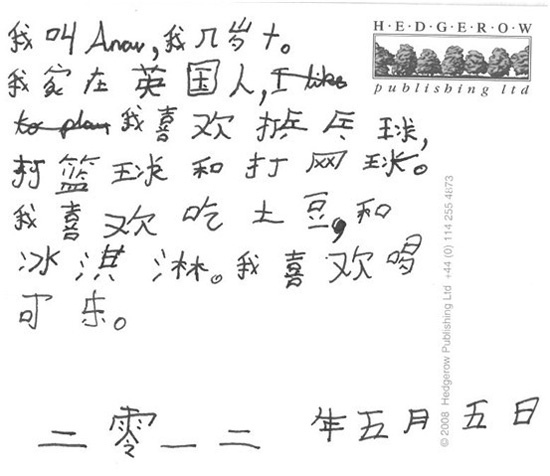 我叫Anav,我几岁十。
我家在英国人,I like
to play 我喜欢打乒乓球,
打篮球和打网球。
我喜欢吃土豆,和
冰淇淋。我喜欢喝
可乐。
二零一二 年五月五日
H·E·D·G·E·R·O·W
publishing ltd
© 2008 Hedgerow Publishing Ltd +44 (0) 114 255 4873